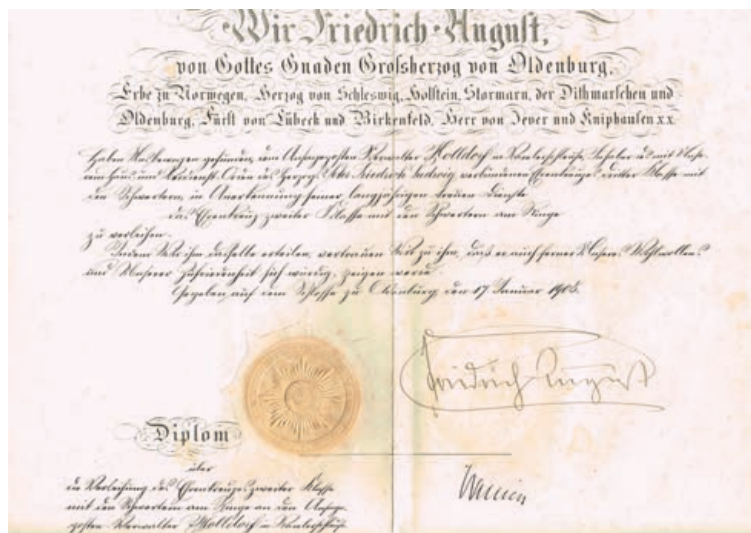 Wir Friedrich August,
von Gottes Gnaden Grossherzog von Oldenburg,
Erbe zu Norwegen, Herzog von Schleswig, Holstein, Stormarn, der Dithmarschen und
Oldenburg, Fürst von Lübeck und Birkenfeld, Herr von Jever und Kniphausen xx
haben Uns bewogen gefunden, dem Verwalter Inhaber des mit
Haus und Verdienst Orden des Herzogs Peter Friedrich Ludwig verbundenen Ehrenkreuzes dritter Klasse mit
den Schwertern, in Anerkennung seiner langjährigen treuen Dienste
das Ehrenkreuz zweiter Klasse mit den Schwertern am Ringe
zu verleihen.
Indem Wir ihm dasselbe erteilen, vertrauen Wir zu ihm, daß er auch ferner Unseres Wohlwollens
und Unserer Zufriedenheit sich würdig zeigen werde.
Gegeben auf dem Schlosse zu Oldenburg, den 17 Januar
Friedrich August
Diplom
über
die Verleihung des Ehrenkreuzes zweiter Klasse
mit den Schwertern am Ringe an den
Verwalter